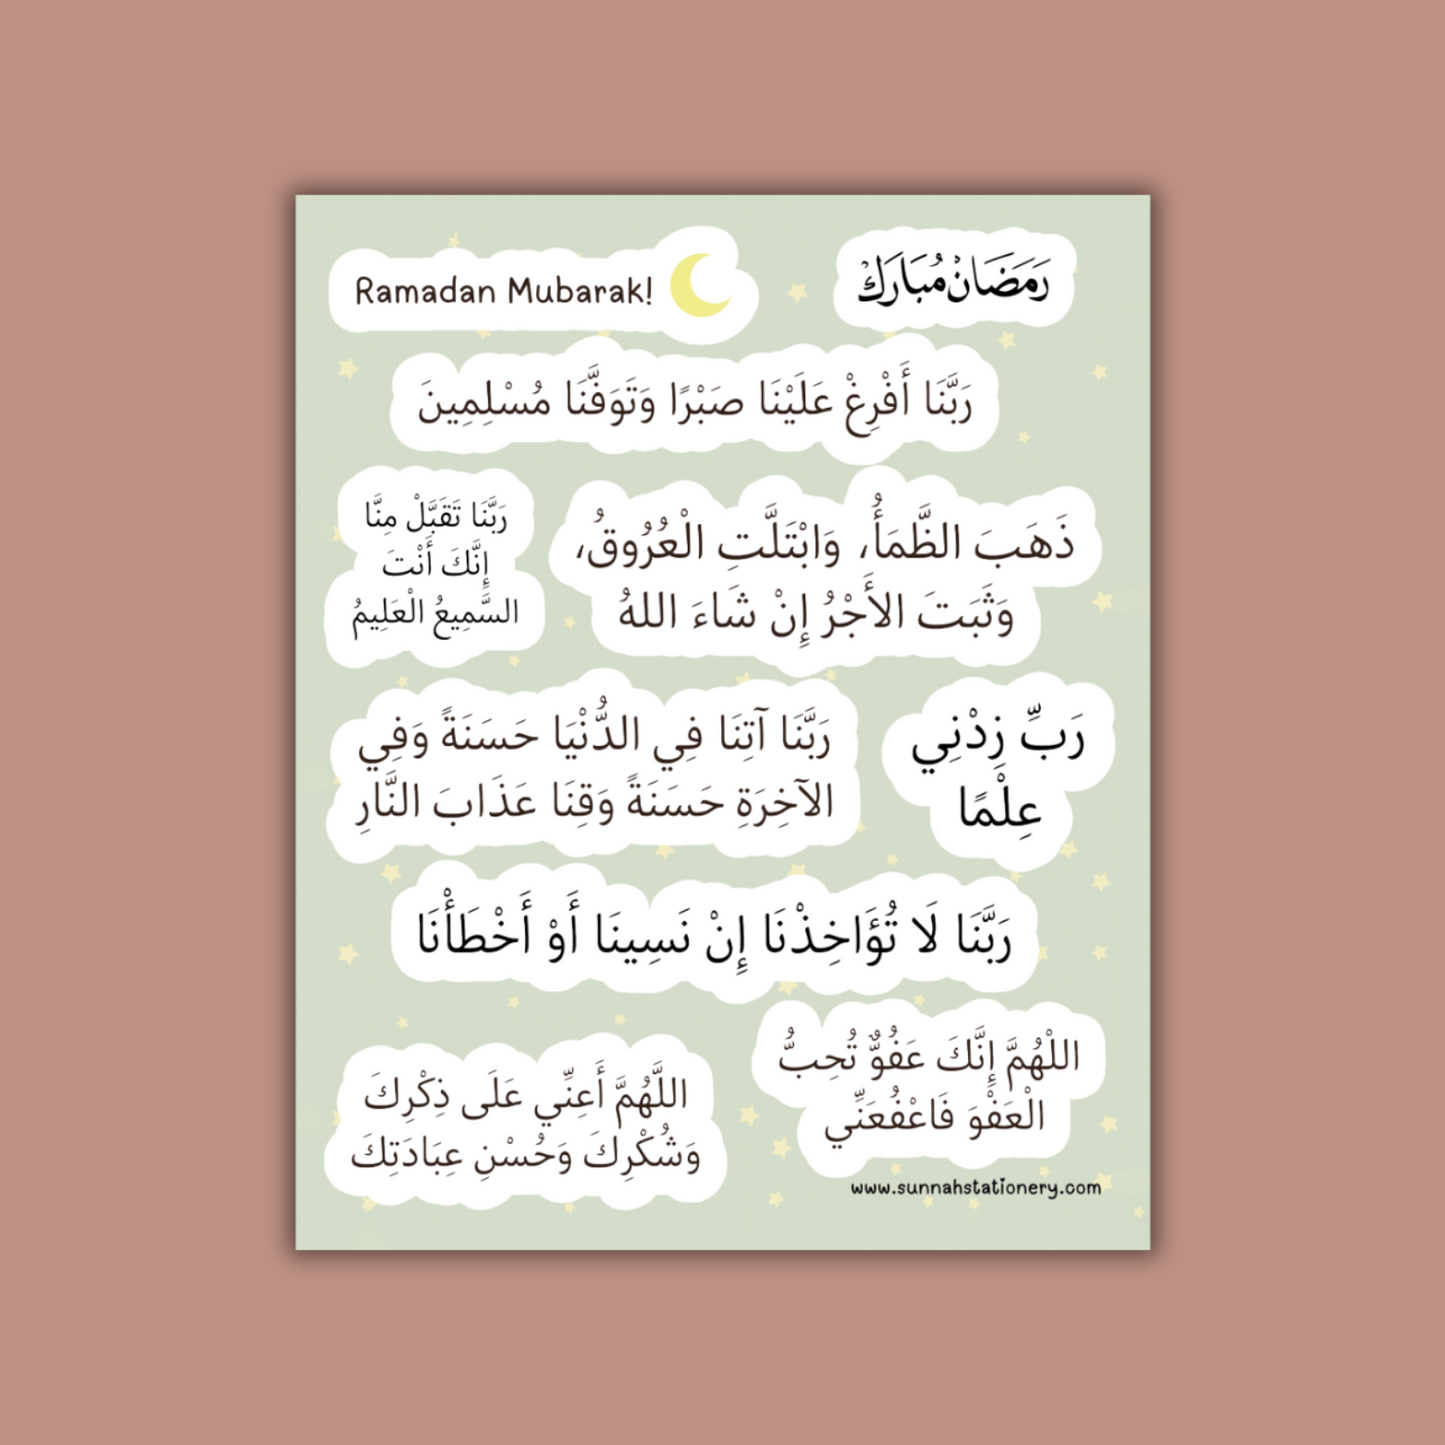 Ramadan Mubarak!
رَمَضَانْ مُبَارَكْ
رَبَّنَا أَفْرِغْ عَلَيْنَا صَبْرًا وَتَوَفَّنَا مُسْلِمِينَ
رَبَّنَا تَقَبَّلْ مِنَّا
إِنَّكَ أَنْتَ
السَّمِيعُ الْعَلِيمُ
ذَهَبَ الظَّمَأُ، وَابْتَلَّتِ الْعُرُوقُ،
وَثَبَتَ الأَجْرُ إِنْ شَاءَ اللهُ
رَبَّنَا آتِنَا فِي الدُّنْيَا حَسَنَةً وَفِي
الآخِرَةِ حَسَنَةً وَقِنَا عَذَابَ النَّارِ
رَبِّ زِدْنِي
عِلْمًا
رَبَّنَا لَا تُؤَاخِذْنَا إِنْ نَسِينَا أَوْ أَخْطَأْنَا
اللْهُمَّ إِنَّكَ عَفُوٌّ تُحِبُّ
الْعَفْوَ فَاعْفُعَنِّي
اللَّهُمَّ أَعِنِّي عَلَى ذِكْرِكَ
وَشُكْرِكَ وَحُسْنِ عِبَادَتِكَ
www.sunnahstationery.com